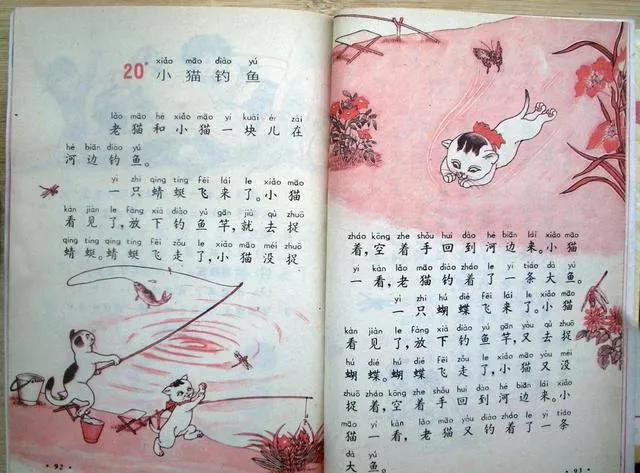 xiǎo māo diào yú
20 小猫钓鱼
lǎo māo hé xiǎo māo yí kuài ér zài
老猫和小猫一块儿在
hé biān diào yú
河边钓鱼。
yì zhī qīng tíng fēi lái le xiǎo māo
一只蜻蜓飞来了。小猫
kàn jiàn le fàng xià diào yú gān jiù qù zhuō
看见了,放下钓鱼竿,就去捉
qīng tíng qīng tíng fēi zǒu le xiǎo māo méi zhuō
蜻蜓。蜻蜓飞走了,小猫没捉
·92·
zháo kōng zhe shǒu huí dào hé biān lái xiǎo māo
着,空着手回到河边来。小猫
yí kàn lǎo māo diào zháo le yì tiáo dà yú
一看,老猫钓着了一条大鱼。
yì zhī hú dié fēi lái le xiǎo māo
一只蝴蝶飞来了。小猫
kàn jiàn le fàng xià diào yú gān yòu qù zhuō
看见了,放下钓鱼竿,又去捉
hú dié hú dié fēi zǒu le xiǎo māo yòu méi
蝴蝶。蝴蝶飞走了,小猫又没
zhuō zháo kōng zhe shǒu huí dào hé biān lái xiǎo
捉着,空着手回到河边来。小
māo yí kàn lǎo māo yòu diào zháo le yì tiáo
猫一看,老猫又钓着了一条
dà yú
大鱼。
·93·